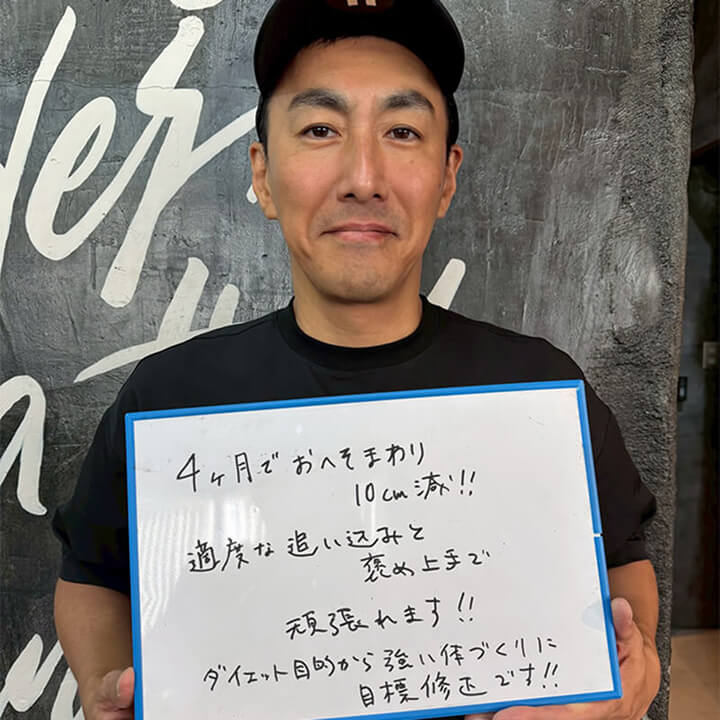 4ヶ月でおへそまわり
10cm減!!
適度な追い込みと
褒め上手で
頑張れます!!
ダイエット目的から強い体づくりに
目標修正です!!